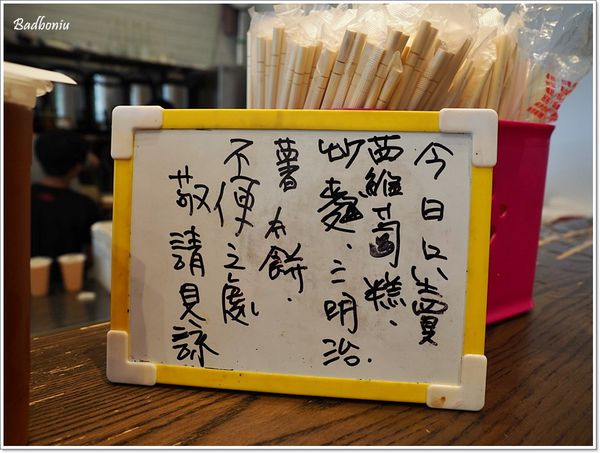 Badboniu
今日只賣
蘿蔔糕.
炒麵.三明治.
薯本餅.
不便之處
敬請見諒